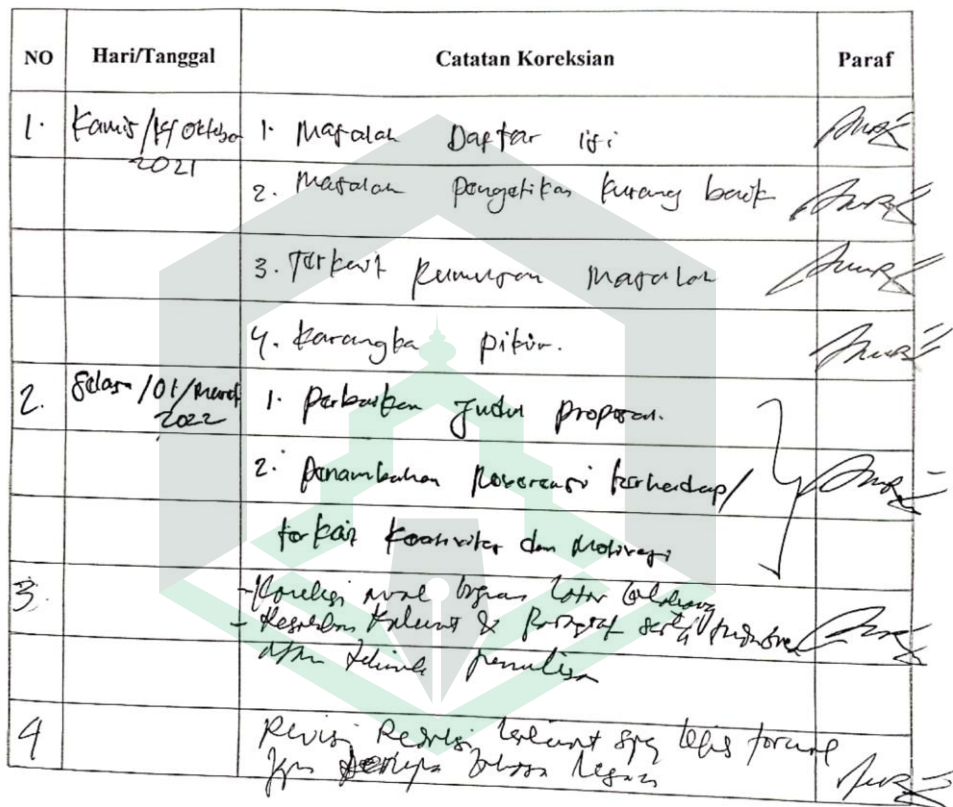 NO Hari/Tanggal Catatan Koreksian Paraf
1. Kamis/14 Oktober 1. Masalah Daftar isi
2021
2. Masalah Pengetikan kurang baik
3. Terkait Rumusan Masalah
4. Karangka Pikir.
2. Selasa/01/Maret 1. Perbaikan Judul Proposal.
2022
2. Penambahan Reverensi terhadap/
terkait Kreativitas dan Motivasi
3. - Koreksi bagian latar belakang
- kalimat & Paragraf serta
penulisan
4 Revisi Redaksi kalimat